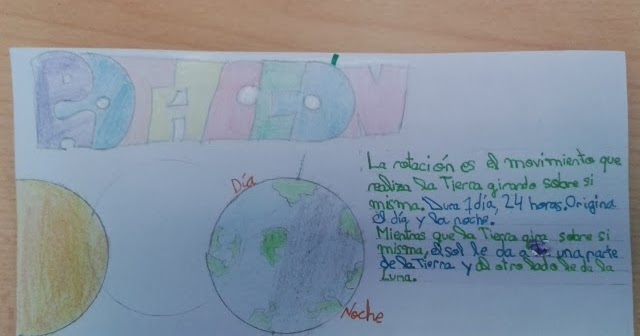 ROTACIÓN
La rotación es el movimiento que
realiza la Tierra girando sobre si
misma. Dura 1 día, 24 horas. Origina
el día y la noche.
Mientras que la Tierra gira sobre si
misma, el sol le da a una parte
de la Tierra y al otro lado le da la
Luna.
Día
Noche